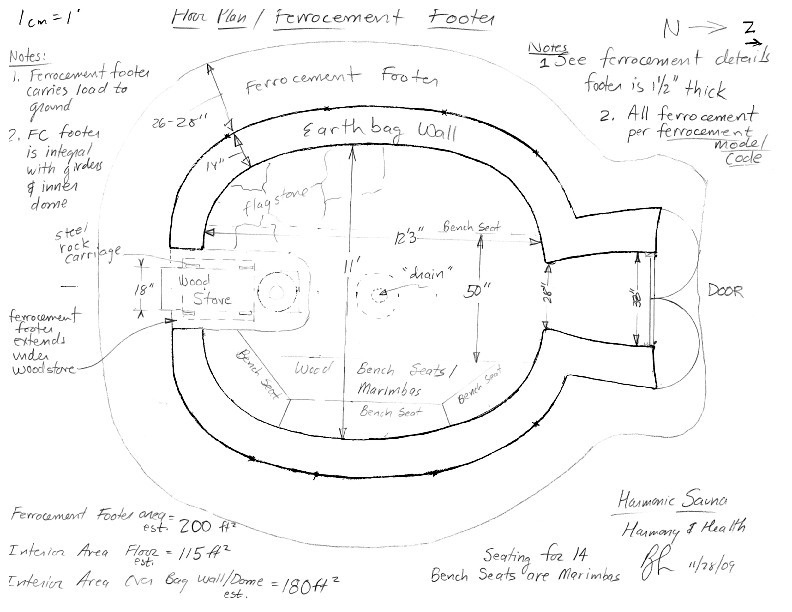 1cm = 1'
Floor Plan / Ferrocement Footer
N → Z
Notes:
1. Ferrocement footer
carries load to
ground
2. FC footer
is integral
with girders
& inner
dome
Notes
1 See ferrocement details
footer is 1½" thick
2. All ferrocement
per ferrocement
model
Code
Ferrocement Footer
26-28"
Earthbag Wall
14"
flagstone
steel
rock
carriage
12'3"
Bench Seat
11'
18"
Wood
Stove
"drain"
50"
28"
38"
DOOR
ferrocement
footer
extends
under
woodstove
Bench Seat
Wood
Bench Seats/
Marimbas
Bench Seat
Bench Seat
Ferrocement Footer area =
est. 200 ft²
Interior Area Floor = 115 ft²
est.
Interior Area Over Bag Wall/Dome = 180 ft²
est.
Seating for 14
Bench Seats are Marimbas
Harmonic Sauna
Harmony & Health
11/28/09